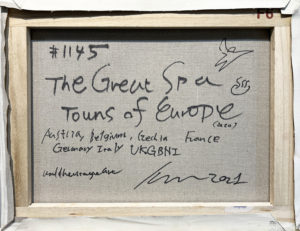 F6
#1145
The Great Spa
Towns of Europe
(2020)
Austria, Belgium, Czechia France
Germany Italy UKGBNI
2021